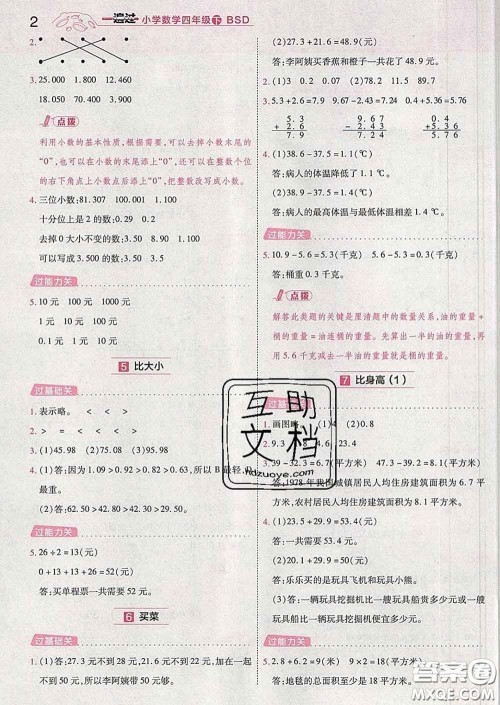 2 一遍过 小学数学四年级 下 BSD
2.
3. 25.000 1.800 12.460
18.050 70.400 3.900
点拨
利用小数的基本性质,根据需要,可以去掉小数末尾的
“0”,也可以在小数的末尾添上“0”,还可以在整数个位
的右下角点上小数点后添上“0”,把整数改写成小数。
4. 三位小数:81.307 100.001 3.010
十分位上是2的小数:0.29 0.2
去掉0大小不变的数:3.50 0.30
可以写成3.500的小数:3.50 3.5
过能力关
5. 10元 100元 1000元
1元 10元 100元
5 比大小
过基础关
1. 表示略。 < < < >
2. > = < = > <
3. (1)45.98 (2)55.98
4. (1)答:因为1.09>0.91>0.87>0.83,所以B最轻,
最重。
(2)答:62.50>42.80>42.50>42.30>30.60
过能力关
5. 26÷2=13(元)
0+13+13+26=52(元)
答:买单程票一共需要52元。
6 买菜
过基础关
1. (1)答:27.3元不到28元,22.4元不到22元,加在一起
不到50元,所以李阿姨带50元够了。
(2)27.3+21.6=48.9(元)
答:李阿姨买香蕉和橙子一共花了48.9元。
2. (1)23 15 38 0.38 (2)0.23 0.15 0.08
3. 5.3+2.6=7.9 0.67-0.4=0.27 0.42+5.36=5.78
5.3 0.67 0.42
+2.6 -0.4 +5.36
7.9 0.27 5.78
4. (1)38.9-37.5=1.4(℃)
答:病人的体温降低了1.1℃。
(2)38.6-37.5=1.1(℃)
答:病人的最高体温与最低体温相差1.4℃。
过能力关
5. 10.9-5.6=5.3(千克) 5.6-5.3=0.3(千克)
答:桶重0.3千克。
点拨
解答此类题的关键是厘清题中的数量关系,油的重量
+桶的重量=油连桶的重量。先算出一半油的重量,
再用5.6千克减去一半油的重量就是桶的重量。
7 比身高(1)
过基础关
1. 画图略。(1)4 (2)0.8
3. 39-32.3=6.7(平方米)
答:1978年我国城镇居民人均住房建筑面积为6.7平
方米,农村居民人均住房建筑面积为8.1平方米。
4. (1)23.5+29.9=53.4(元)
答:乐乐买的是玩具飞机和玩具小熊。
(2)答:一辆玩具挖掘机比一个玩具船贵多少元?一艘
玩具船比一辆玩具挖掘机贵2.9元。
过能力关
5. 2.8+6.2=9(米) 9×2=18(平方米)
答:地毯的总面积至少是18平方米。
互助
文档
hdzuoye.com
答案圈
MXQE.COM